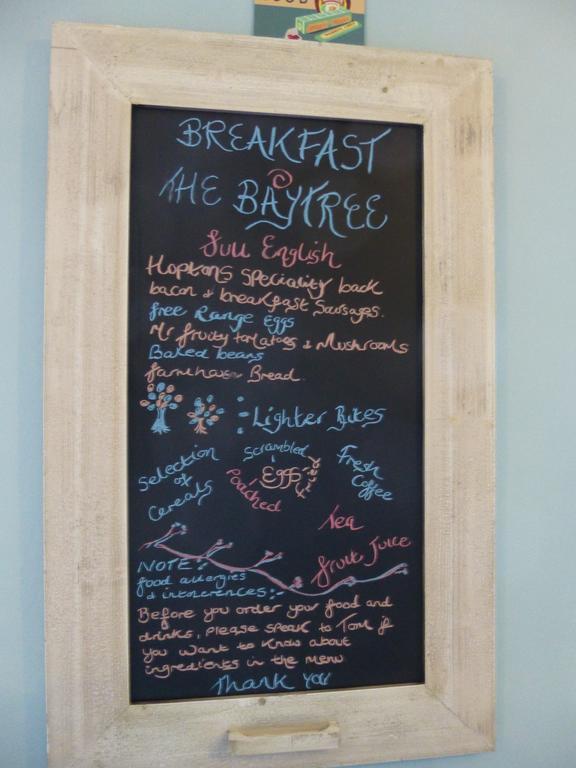 BREAKFAST
@
THE BAYTREE
Full English
Hoptons Speciality back
bacon & breakfast Sausages.
free Range Eggs
Mr fruity tomatoes & Mushrooms
Baked beans
farmhouse Bread.
:- Lighter Bites
Selection
of
Cereals
Scrambled
Eggs
Poached
fried
Fresh
Coffee
Tea
fruit Juice
NOTE:-
food allergies
& intolerences:-
Before you order your food and
drinks, please speak to Tom if
you want to know about
ingredients in the menu
Thank you